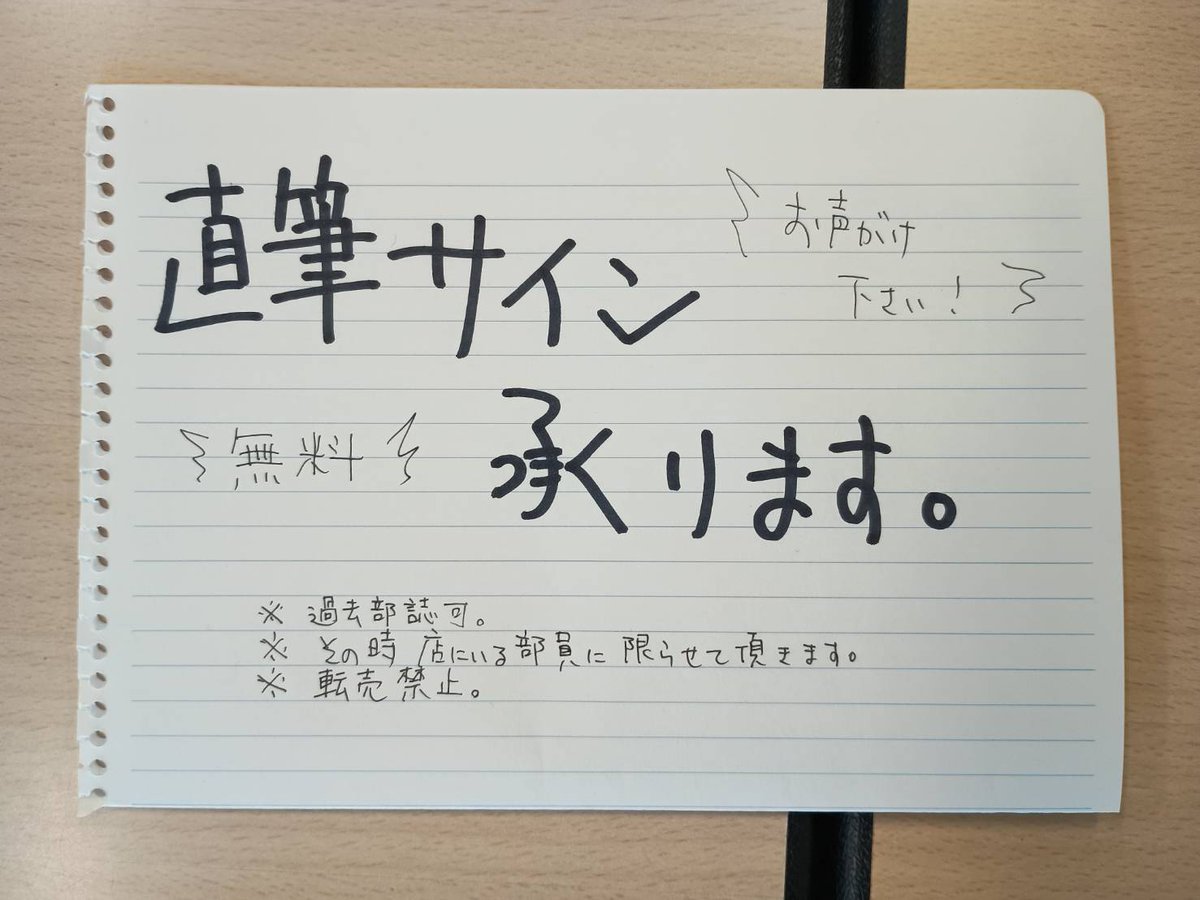 直筆サイン
お声がけ
下さい！
無料
承ります。
※ 過去部誌可。
※ その時店にいる部員に限らせて頂きます。
※ 転売禁止。